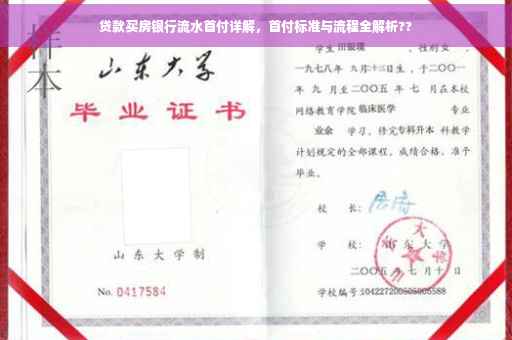 贷款买房银行流水首付详解，首付标准与流程全解析??
样本
山东大学
毕业证书
山东大学制
No. 0417584
学生 ，性别女，
一九七八年 九月十三日生，于二〇〇一
年 九 月至二〇〇五 年 七 月在本校
网络教育学院 临床医学 专业
业余 学习，修完专科升本 科教学
计划规定的全部课程，成绩合格，准予
毕业。
校 长：
学 校：山东大学
二〇〇五年七月十日
学校编号: